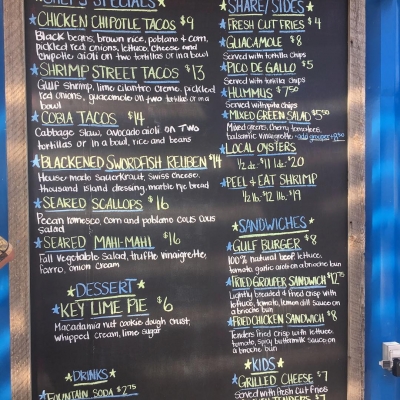 CHEF'S SPECIALS
CHICKEN CHIPOTLE TACOS $9
Black beans, brown rice, poblano + corn,
pickled red onions, lettuce, cheese and
chipotle aioli on two tortillas or in a bowl
SHRIMP STREET TACOS $13
Gulf shrimp, lime cilantro creme, pickled
red onions, guacamole on two tortillas or in a
bowl
COBIA TACOS $14
Cabbage slaw, avocado aioli on TWO
tortillas or in a bowl, rice and beans
BLACKENED SWORDFISH REUBEN $14
House made sauerkraut, swiss cheese,
thousand island dressing, marble rye bread
SEARED SCALLOPS $16
Pecan romesco, corn and poblano cous cous
salad
SEARED MAHI-MAHI $16
Fall vegetable salad, truffle vinaigrette,
farro, onion cream
DESSERT
KEY LIME PIE $6
Macadamia nut cookie dough crust,
whipped cream, lime sugar
DRINKS
FOUNTAIN SODA $2.75
SHARE/SIDES
FRESH CUT FRIES $4
GUACAMOLE $8
Served with tortilla chips
PICO DE GALLO $5
Served with tortilla chips
HUMMUS $7.50
Served with pita chips
MIXED GREEN SALAD $5.50
Mixed greens, cherry tomatoes,
balsamic vinaigrette add grouper
LOCAL OYSTERS
1/2 dz. $11 1dz. $20
PEEL & EAT SHRIMP
1/4 lb. $12 1/2 lb. $19
SANDWICHES
GULF BURGER $8
100% natural beef, lettuce,
tomato, garlic aioli on a brioche bun
FRIED GROUPER SANDWICH $12.75
Lightly breaded & fried crisp with
lettuce, tomato, lemon dill sauce on
a brioche bun
FRIED CHICKEN SANDWICH $8
Tenders fried crisp with lettuce,
tomato, spicy buttermilk sauce on
a brioche bun
KIDS
GRILLED CHEESE $7
Served with Fresh Cut Fries
TENDERS $7